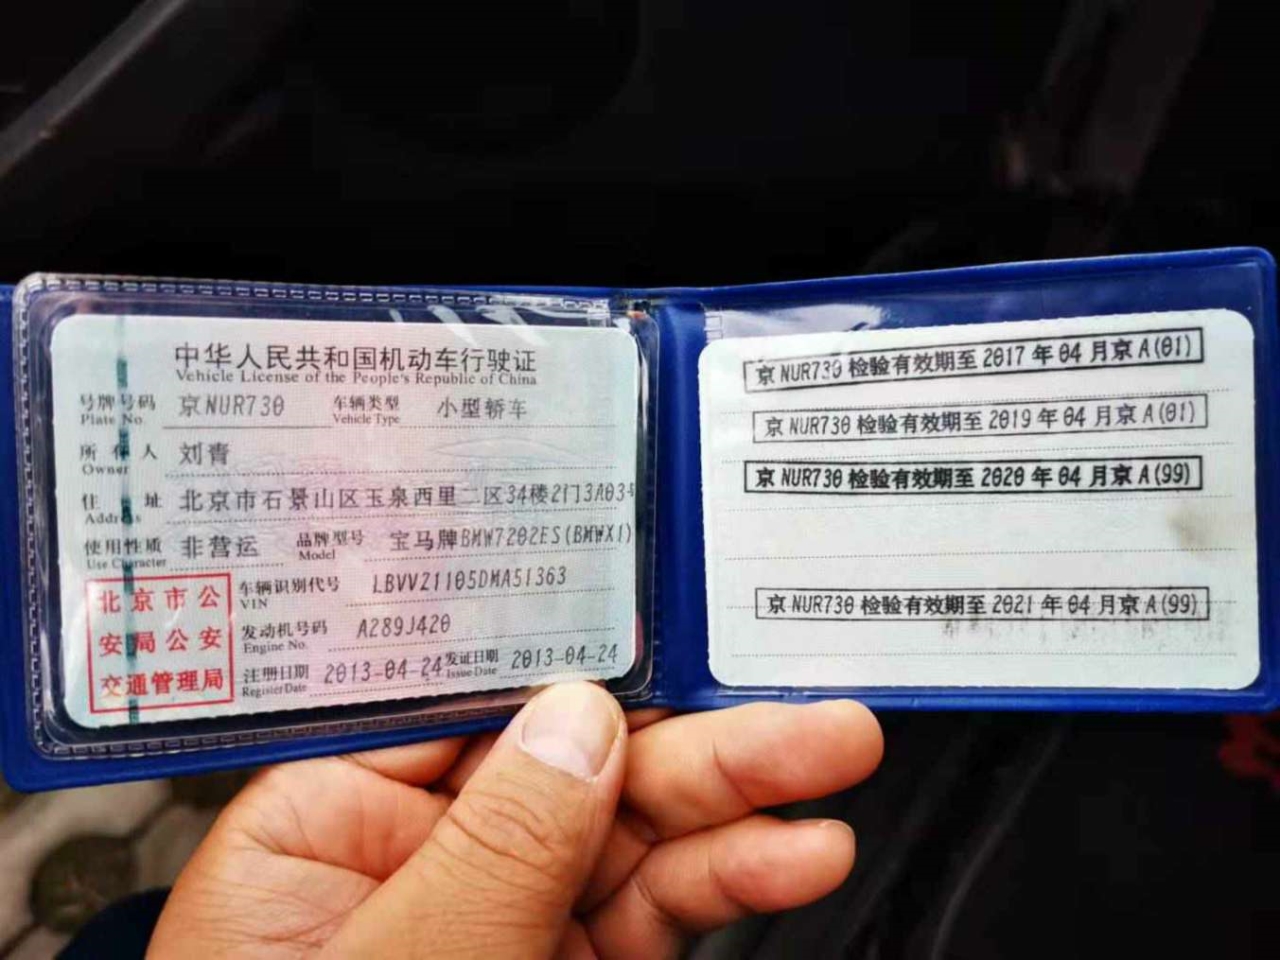 中华人民共和国机动车行驶证
Vehicle License of the People's Republic of China
号牌号码 京NUR730 车辆类型 小型轿车
Plate No. Vehicle Type
所有人 刘青
Owner
住址 北京市石景山区玉泉西里二区34楼2门3A03号
Address
使用性质 非营运 品牌型号 宝马牌BMW7202ES(BMWX1)
Use Character Model
北京市公
安局公安
交通管理局
车辆识别代号 LBVV21105DMA51363
VIN
发动机号码 A289J420
Engine No.
注册日期 2013-04-24 发证日期 2013-04-24
Register Date Issue Date
京NUR730 检验有效期至 2017 年 04 月京 A(01)
京NUR730 检验有效期至 2019 年 04 月京 A(01)
京NUR730 检验有效期至 2020 年 04 月京 A(99)
京NUR730 检验有效期至 2021 年 04 月京 A(99)